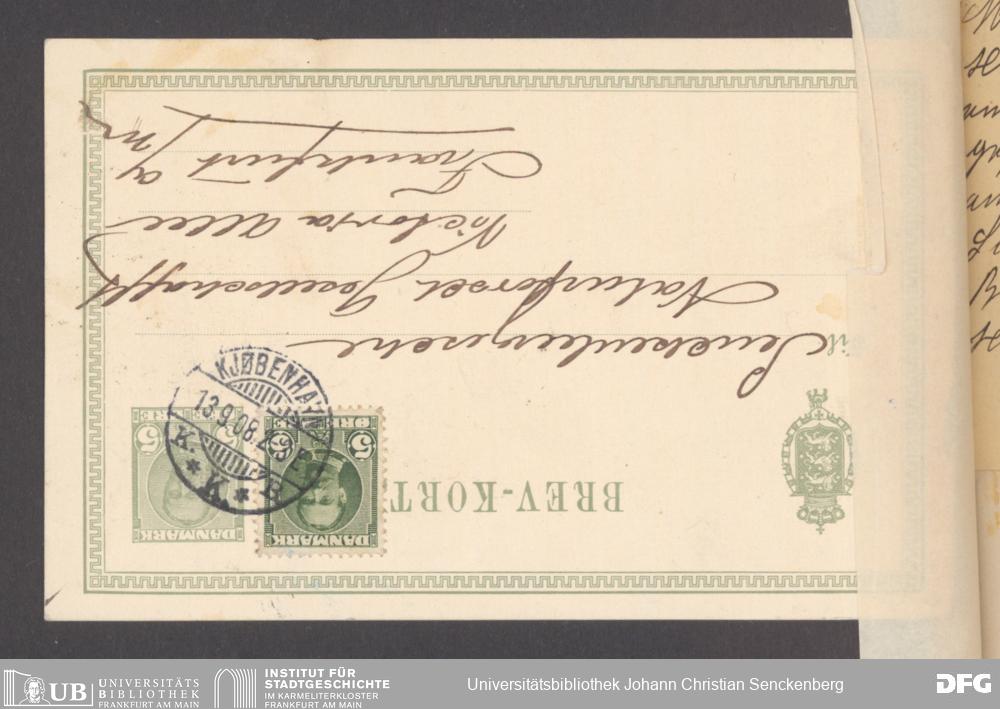 BREV-KORT
DANMARK
5 5
ØRE
DANMARK
5 5
ØRE
KJØBENHAVN
13.9.08. 2-3 E
K. * K. * B.
Til
Senckenbergische
Naturforsch Gesellschafft
Victoria Allee
Frankfurt a/m
UB UNIVERSITÄTS
BIBLIOTHEK
FRANKFURT AM MAIN
INSTITUT FÜR
STADTGESCHICHTE
IM KARMELITERKLOSTER
FRANKFURT AM MAIN
Universitätsbibliothek Johann Christian Senckenberg
DFG